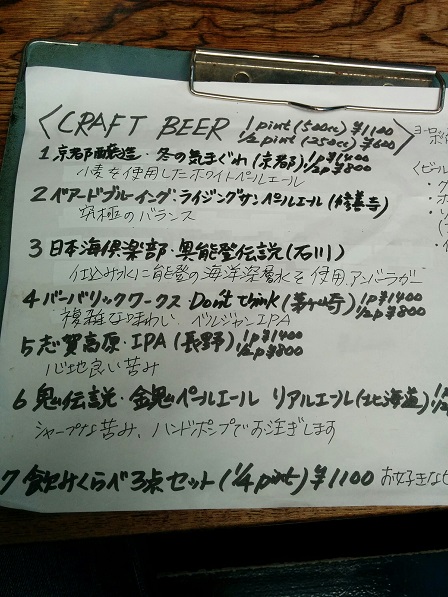 〈CRAFT BEER 1 pint (500cc) ¥1100
1/2 pint (250cc) ¥600〉
1 京都醸造・冬の気まぐれ (京都) 1p¥1400
1/2p¥800
小麦を使用したホワイトペールエール
2 ベアードブルーイング・ライジングサンペールエール (修善寺)
究極のバランス
3 日本海倶楽部・奥能登伝説 (石川)
仕込み水に能登の海洋深層水を使用.アンバーラガー
4 バーバリックワークス Don't think (茅ヶ崎) 1p¥1400
1/2p¥800
複雑な味わい. ベルジャンIPA
5 志賀高原・IPA (長野) 1p¥1400
1/2p¥800
心地良い苦み
6 鬼伝説・金鬼ペールエール リアルエール (北海道)
シャープな苦み、ハンドポンプでお注ぎします
7 飲みくらべ3点セット (1/4 pint) ¥1100 お好きな